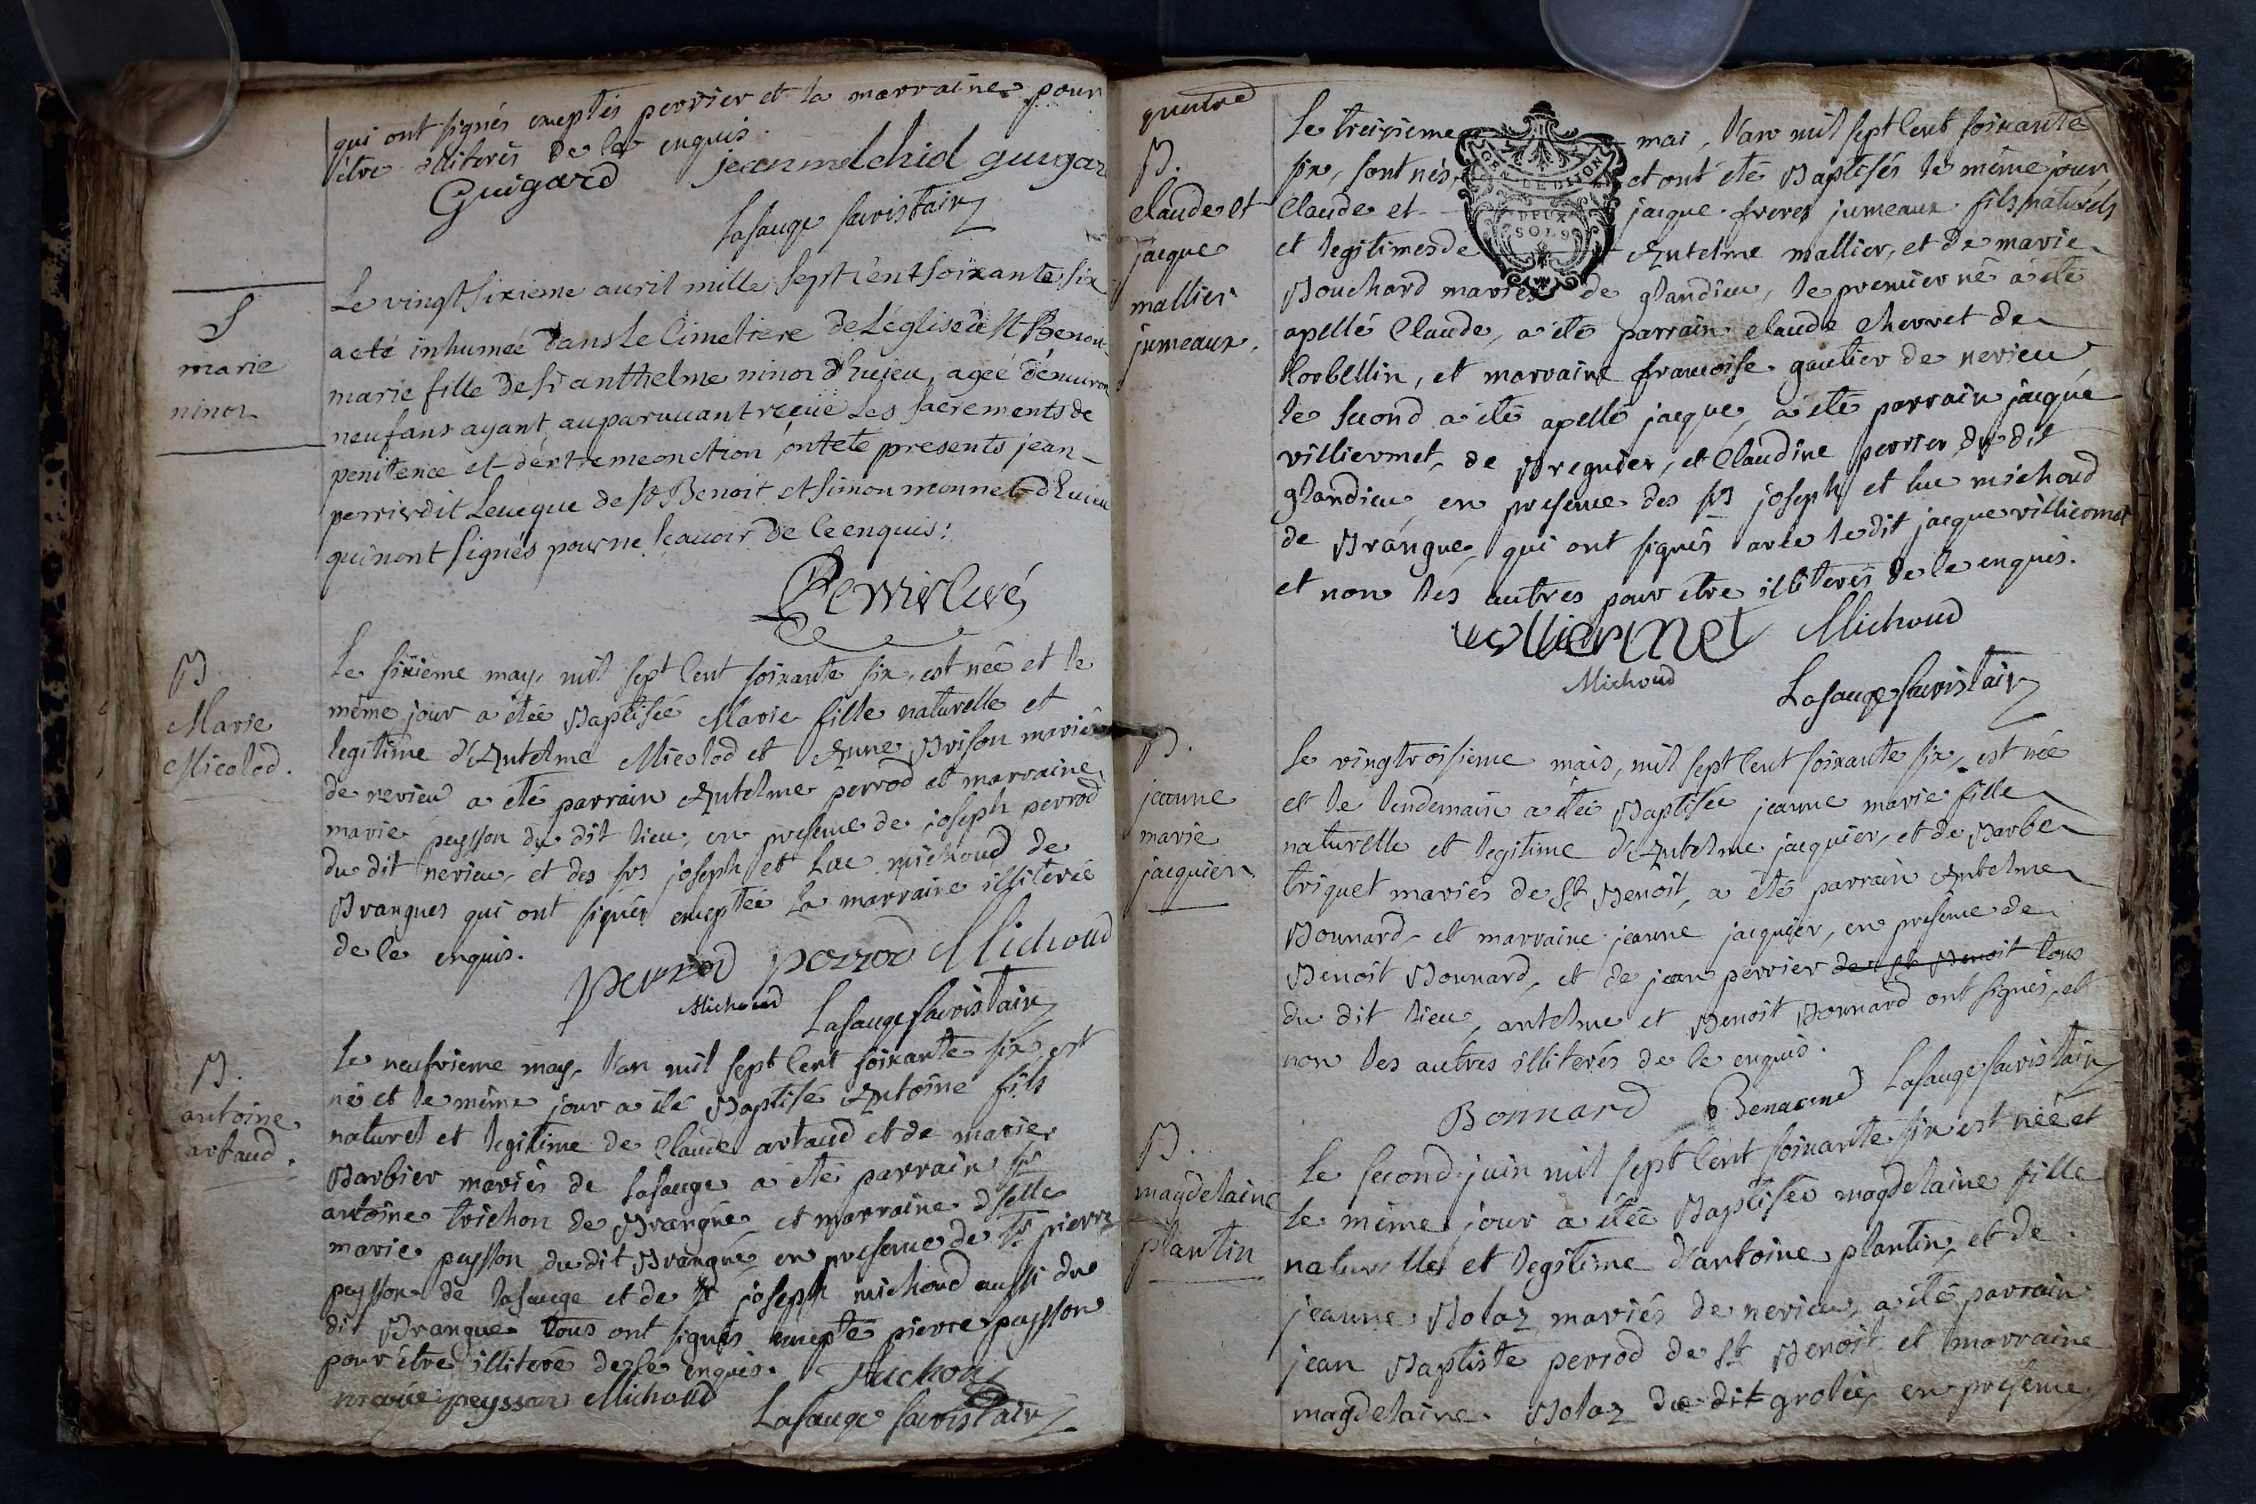 qui ont signés exeptés perrier et la marraine pour
être illiterés de le enquis.
Guigard jean melchid guigar
Lasauge sacristain
S
marie
ninoz
Le vingt sixieme avril mille sept cent soixante six
a eté inhumeé dans le Cimetiere de L'église de St Benoi
marie fille de Sr anthelme ninoz d'huieu, ageé d'environ
neuf ans ayant auparavant reçeüe Les sacrements de
penitence et d'extremeonction ont eté presents jean
perrier dit Leveque de St Benoit et simon monnet d'huieu
qui n'ont signés pour ne scavoir de Ce enquis.
Perrier Curé
B.
Marie
Micolod.
Le sixieme may, mil sept Cent soixante six, est neé et le
même jour a eteé Baptisée Marie fille naturelle et
legitime d'Antelme Micolod et Anne Brison mariés
de nerieu a été parrain Antelme perrod et marraine
marie peysson du dit lieu, en presence de joseph perrod
du dit nerieu, et des srs joseph et Luc michoud de
Brangues qui ont signés exeptée la marraine illiterée
de le enquis.
perrod perrod Michoud
Michoud Lasauge sacristain
B.
antoine
artaud.
Le neufvieme may, l'an mil sept Cent soixante six est
né et le même jour a été Baptisé Antoine fils
naturel et legitime de Claude artaud et de marie
Barbier mariés de Lasauge a été parrain sr
antoine trichon de Brangue et marraine dselle
marie peysson du dit Brangue en presence de sr pierre
peysson de lasauge et de sr joseph michoud aussi du
dit Brangue tous ont signés exepté pierre peysson
pour être illiteré de le enquis. Truchon
marie peysson Michoud
Lasauge sacristain
quatre
B.
claude et
jacque
mallier
jumeaux.
GEN. DE DIJON
DEUX
SOLS
Le treizieme mai, l'an mil sept Cent soixante
six, sont nés, et ont été Baptisés le même jour
Claude et jacque freres jumeaux fils naturels
et legitimes de Antelme mallier, et de marie
Bouchard mariés de glandieu, le premier né a été
apellé Claude, a été parrain claude Chevret de
Corbellin, et marraine francoise gautier de nerieu
le second a été apellé jacque, a été parrain jacque
villiermet, de Bregnier, et Claudine perrier du dit
glandieu en presence des srs joseph et luc michoud
de Brangue, qui ont signés avec le dit jacque villiermet
et non les autres pour etre illiterés de le enquis.
villiermet Michoud
Michoud
Lasauge sacristain
B.
jeanne
marie
jacquier
Le vingtroisieme mais, mil sept Cent soixante six, est née
et le lendemain a été Baptisée jeanne marie fille
naturelle et legitime d'Antelme jacquier, et de Barbe
triquet mariés de St Benoit, a été parrain Antelme
Bonnard, et marraine jeanne jacquier, en presence de
Benoit Bonnard, et de jean perrier de St Benoit tous
du dit lieu, antelme et Benoit Bonnard ont signés, et
non les autres illiterés de le enquis.
Bonnard Lasauge sacristain
B.
magdelaine
plantin
Le second juin mil sept Cent soixante six est née et
le même jour a eteé Baptisée magdelaine fille
naturelle et legitime d'antoine plantin et de
jeanne Bolaz mariés de nerieu, a été parrain
jean Baptiste perrod de St Benoit et marraine
magdelaine Bolaz du dit groleé, en presence